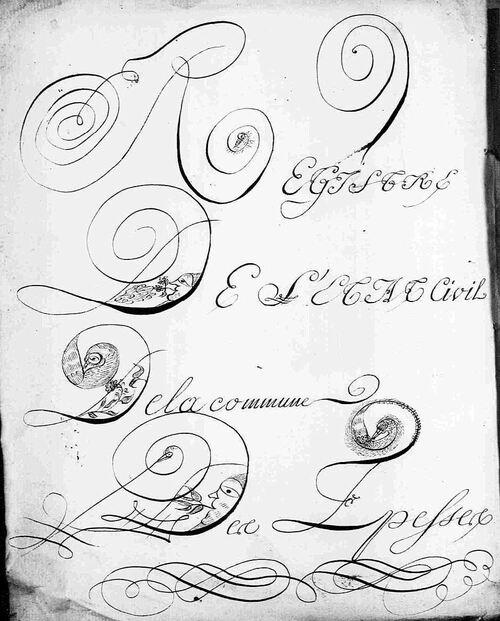 REGISTRE
DE L'ETAT Civil
De la commune
Des Epesses